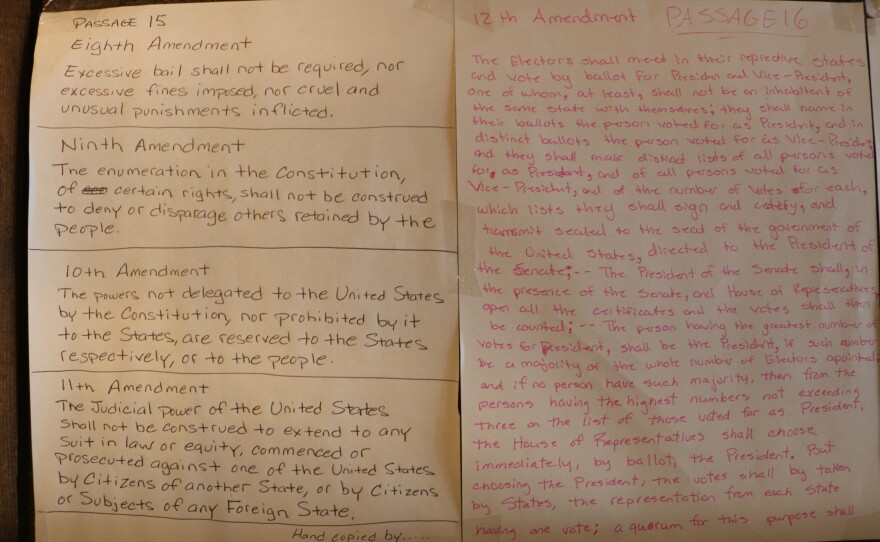 PASSAGE 15
Eighth Amendment
Excessive bail shall not be required, nor
excessive fines imposed, nor cruel and
unusual punishments inflicted.
Ninth Amendment
The enumeration in the Constitution,
of certain rights, shall not be construed
to deny or disparage others retained by the
people.
10th Amendment
The powers not delegated to the United States
by the Constitution, nor prohibited by it
to the States, are reserved to the States
respectively, or to the people.
11th Amendment
The Judicial power of the United States
shall not be construed to extend to any
Suit in law or equity, commenced or
prosecuted against one of the United States
by Citizens of another State, or by Citizens
or Subjects of any Foreign State.
Hand copied by......
12th Amendment PASSAGE 16
The Electors shall meet in their repective states
and vote by ballot for Presidnt and Vice-President,
one of whom, at least, shall not be an inhabitent of
the same state with themselves; they shall name in
their ballots the person voted for as President, and in
distinct ballots the person voted for as Vice-President
and they shall make distinct lists of all persons voted
for, as President, and of all persons voted for as
Vice-President, and of the number of Votes for each,
which lists they shall sign and and
transmit sealed to the seat of the government of
the United States, directed to the President of
the Senate;-- The President of the Senate shall, in
the presence of the Senate, and House of Representatives,
open all the certificates and the votes shall then
be counted;-- The person having the greatest number of
votes for President, shall be the President, if such number
be a majority of the whole number of Electors apointed;
and if no person have such majority, then from the
persons having the highest numbers not exceeding
three on the list of those voted for as President,
the House of Representatives shall choose
immediately, by ballot, the President. But
choosing the President, the votes shall by taken
by States, the representation from each state
having one vote; a quorum for this purpose shall